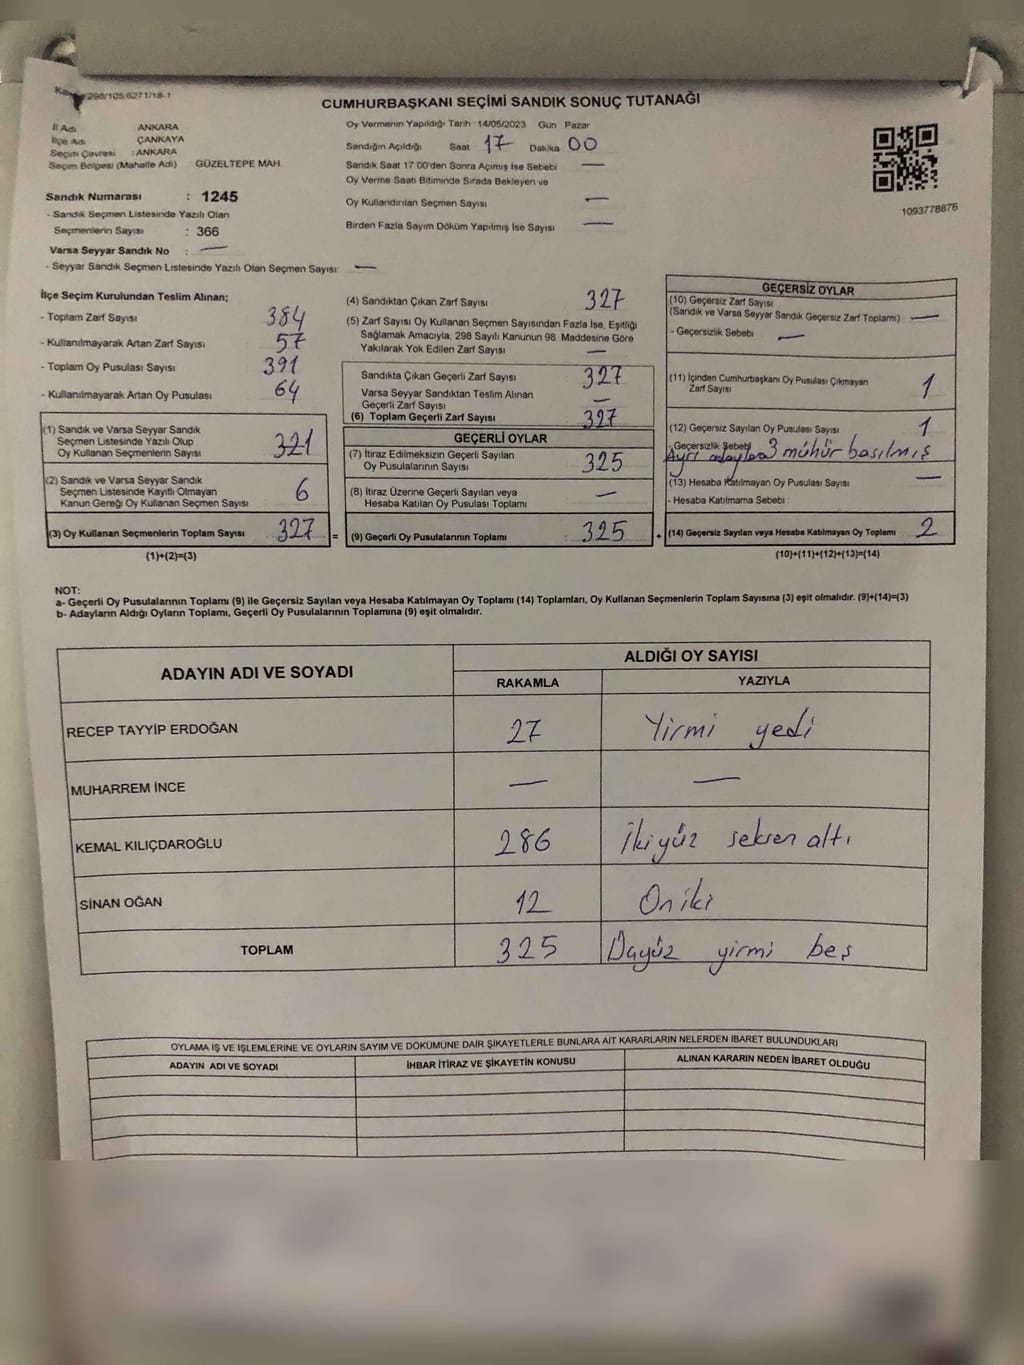 298/105.6271/18-1
CUMHURBAŞKANI SEÇİMİ SANDIK SONUÇ TUTANAĞI
İl Adı ANKARA
İlçe Adı ÇANKAYA
Seçim Çevresi : ANKARA
Seçim Bölgesi (Mahalle Adı) GÜZELTEPE MAH
Sandık Numarası : 1245
- Sandık Seçmen Listesinde Yazılı Olan
Seçmenlerin Sayısı : 366
Varsa Seyyar Sandık No : —
- Seyyar Sandık Seçmen Listesinde Yazılı Olan Seçmen Sayısı: —
Oy Vermenin Yapıldığı Tarih : 14/05/2023 Gün Pazar
Sandığın Açıldığı Saat 17 Dakika 00
Sandık Saat 17:00'den Sonra Açımış İse Sebebi —
Oy Verme Saati Bitiminde Sırada Bekleyen ve
Oy Kullandırılan Seçmen Sayısı —
Birden Fazla Sayım Döküm Yapılmış İse Sayısı —
1093778876
İlçe Seçim Kurulundan Teslim Alınan;
- Toplam Zarf Sayısı 384
- Kullanılmayarak Artan Zarf Sayısı 57
- Toplam Oy Pusulası Sayısı 391
- Kullanılmayarak Artan Oy Pusulası 64
(1) Sandık ve Varsa Seyyar Sandık
Seçmen Listesinde Yazılı Olup
Oy Kullanan Seçmenlerin Sayısı 321
(2) Sandık ve Varsa Seyyar Sandık
Seçmen Listesinde Kayıtlı Olmayan
Kanun Gereği Oy Kullanan Seçmen Sayısı 6
(3) Oy Kullanan Seçmenlerin Toplam Sayısı 327
(1)+(2)=(3)
(4) Sandıktan Çıkan Zarf Sayısı 327
(5) Zarf Sayısı Oy Kullanan Seçmen Sayısından Fazla İse, Eşitliği
Sağlamak Amacıyla, 298 Sayılı Kanunun 98. Maddesine Göre
Yakılarak Yok Edilen Zarf Sayısı —
Sandıkta Çıkan Geçerli Zarf Sayısı 327
Varsa Seyyar Sandıktan Teslim Alınan
Geçerli Zarf Sayısı —
(6) Toplam Geçerli Zarf Sayısı 327
GEÇERLİ OYLAR
(7) İtiraz Edilmeksizin Geçerli Sayılan
Oy Pusulalarının Sayısı 325
(8) İtiraz Üzerine Geçerli Sayılan veya
Hesaba Katılan Oy Pusulası Toplamı —
= (9) Geçerli Oy Pusulalarının Toplamı 325
GEÇERSİZ OYLAR
(10) Geçersiz Zarf Sayısı
(Sandık ve Varsa Seyyar Sandık Geçersiz Zarf Toplamı) —
- Geçersizlik Sebebi —
(11) İçinden Cumhurbaşkanı Oy Pusulası Çıkmayan
Zarf Sayısı 1
(12) Geçersiz Sayılan Oy Pusulası Sayısı 1
- Geçersizlik Sebebi
Ayrı adaylara 3 mühür basılmış
(13) Hesaba Katılmayan Oy Pusulası Sayısı —
- Hesaba Katılmama Sebebi :
+ (14) Geçersiz Sayılan veya Hesaba Katılmayan Oy Toplamı 2
(10)+(11)+(12)+(13)=(14)
NOT:
a- Geçerli Oy Pusulalarının Toplamı (9) ile Geçersiz Sayılan veya Hesaba Katılmayan Oy Toplamı (14) Toplamları, Oy Kullanan Seçmenlerin Toplam Sayısına (3) eşit olmalıdır. (9)+(14)=(3)
b- Adayların Aldığı Oyların Toplamı, Geçerli Oy Pusulalarının Toplamına (9) eşit olmalıdır.
ADAYIN ADI VE SOYADI ALDIĞI OY SAYISI
RAKAMLA YAZIYLA
RECEP TAYYİP ERDOĞAN 27 Yirmi yedi
MUHARREM İNCE — —
KEMAL KILIÇDAROĞLU 286 İkiyüz seksen altı
SİNAN OĞAN 12 Oniki
TOPLAM 325 Üçyüz yirmi beş
OYLAMA İŞ VE İŞLEMLERİNE VE OYLARIN SAYIM VE DÖKÜMÜNE DAİR ŞİKAYETLERLE BUNLARA AİT KARARLARIN NELERDEN İBARET BULUNDUKLARI
ADAYIN ADI VE SOYADI İHBAR İTİRAZ VE ŞİKAYETİN KONUSU ALINAN KARARIN NEDEN İBARET OLDUĞU